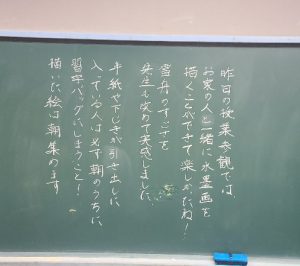 昨日の授業参観では
お家の人と一緒に水墨画を
描くことができて楽しかったね!
雪舟のすごさを
先生も改めて実感しました。
半紙や下じきが引き出しに
入っている人は必ず朝のうちに
習字バッグにしまうこと!
描いた絵は朝集めます